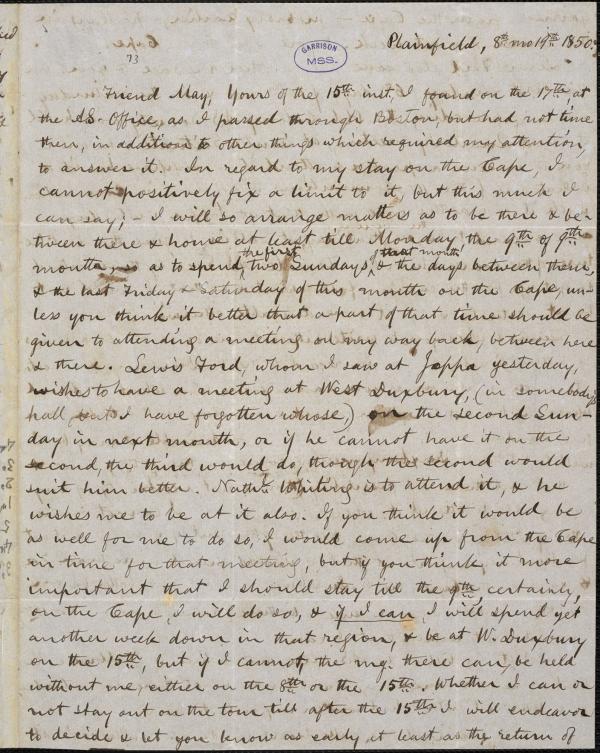 GARRISON
MSS.
73
Plainfield, 8th mo 19th 1850.
Friend May, Yours of the 15th inst, I found on the 17th, at
the AS. Office, as I passed through Boston, but had not time
then, in addition to other things which required my attention,
to answer it. In regard to my stay on the Cape, I
cannot positively fix a limit to it, but this much I
can say; - I will so arrange matters as to be there & be-
tween there & home at least till Monday the 9th of 9th
month, so as to spend the first two Sundays of that month & the days between them,
& the last Friday & Saturday of this month on the Cape, un-
less you think it better that a part of that time should be
given to attending a meeting on my way back, between here
& there. Lewis Ford, whom I saw at Joppa yesterday,
wishes to have a meeting at West Duxbury, (in somebody's
hall, but I have forgotten whose) on the second Sun-
day in next month, or if he cannot have it on the
second, the third would do, though the second would
suit him better. Nathl. Whiting is to attend it, & he
wishes me to be at it also. If you think it would be
as well for me to do so, I would come up from the Cape
in time for that meeting, but if you think it more
important that I should stay till the 9th certainly,
on the Cape, I will do so, & if I can, I will spend yet
another week down in that region, & be at W. Duxbury
on the 15th, but if I cannot, the mg. there can be held
without me, either on the 8th or the 15th. Whether I can or
not stay out on the tour till after the 15th I will endeavor
to decide & let you know as early at least as the return of